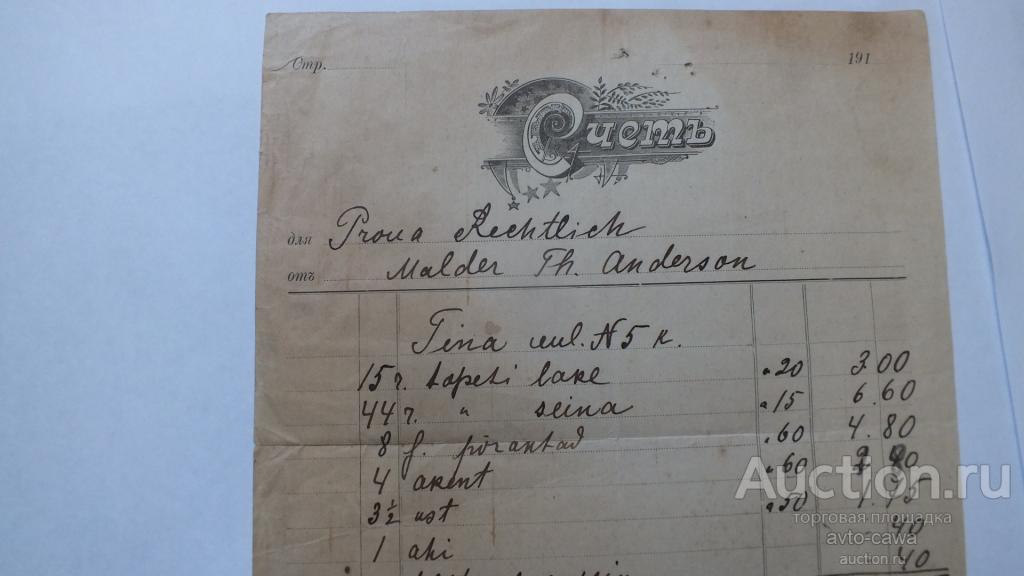 Стр. 191
Счетъ
для Proua Rechtlich
отъ Malder Th. Anderson
Tina uul. N 5 k.
15 r. tapeti lake .20 3.00
44 r. " seina .15 6.60
8 f. põrantad .60 4.80
4 akent .60
3½ ust .50 1.75
1 ahi 40
40
Auction.ru
торговая площадка
avto-cawa
auction.ru